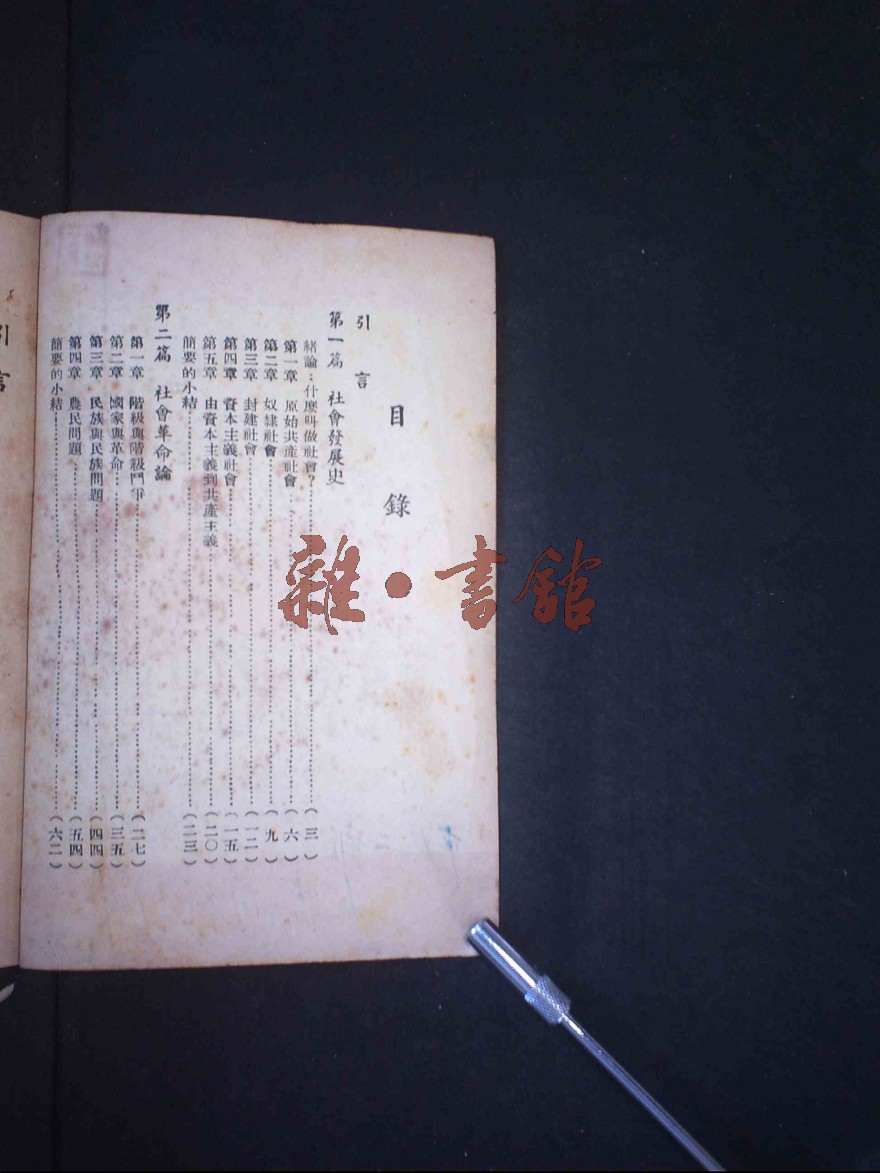 目錄
引言
第一篇 社會發展史
緒論：什麼叫做社會？……（三）
第一章 原始共產社會……（六）
第二章 奴隸社會……（九）
第三章 封建社會……（一二）
第四章 資本主義社會……（一五）
第五章 由資本主義到共產主義……（二〇）
簡要的小結……（二三）
第二篇 社會革命論
第一章 階級與階級鬥爭……（二七）
第二章 國家與革命……（三五）
第三章 民族與民族問題……（四四）
第四章 農民問題……（五四）
簡要的小結……（六二）
引言
雜·書館